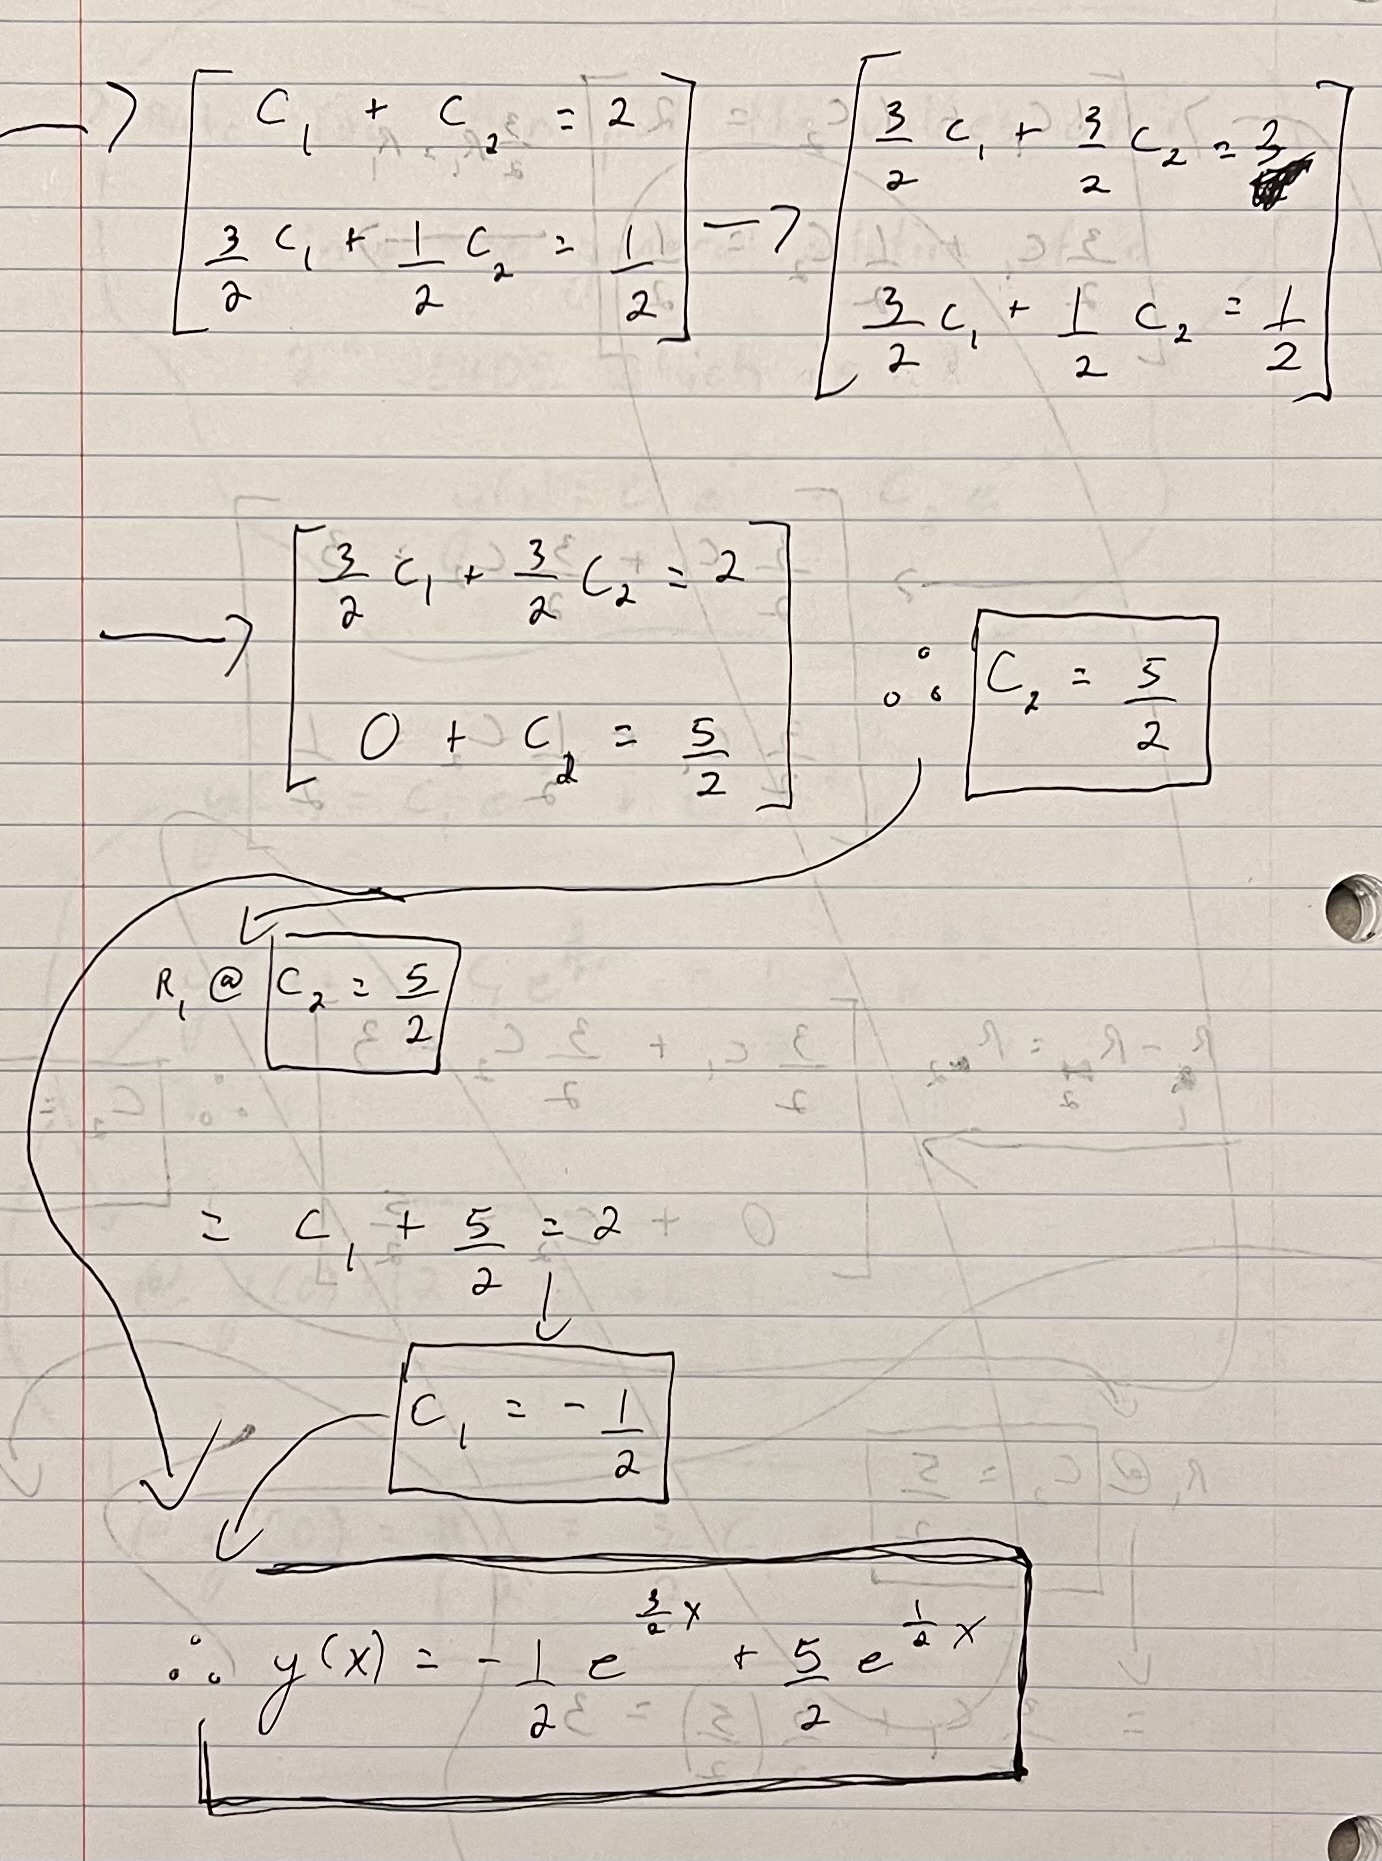 → [ C₁ + C₂ = 2
3/2 C₁ + 1/2 C₂ = 1/2 ]
→ [ 3/2 C₁ + 3/2 C₂ = 3
3/2 C₁ + 1/2 C₂ = 1/2 ]
→ [ 3/2 C₁ + 3/2 C₂ = 2
0 + C₂ = 5/2 ]
∴ C₂ = 5/2
R₁ @ C₂ = 5/2
= C₁ + 5/2 = 2
C₁ = - 1/2
∴ y(x) = - 1/2 e^(3/2 x) + 5/2 e^(1/2 x)